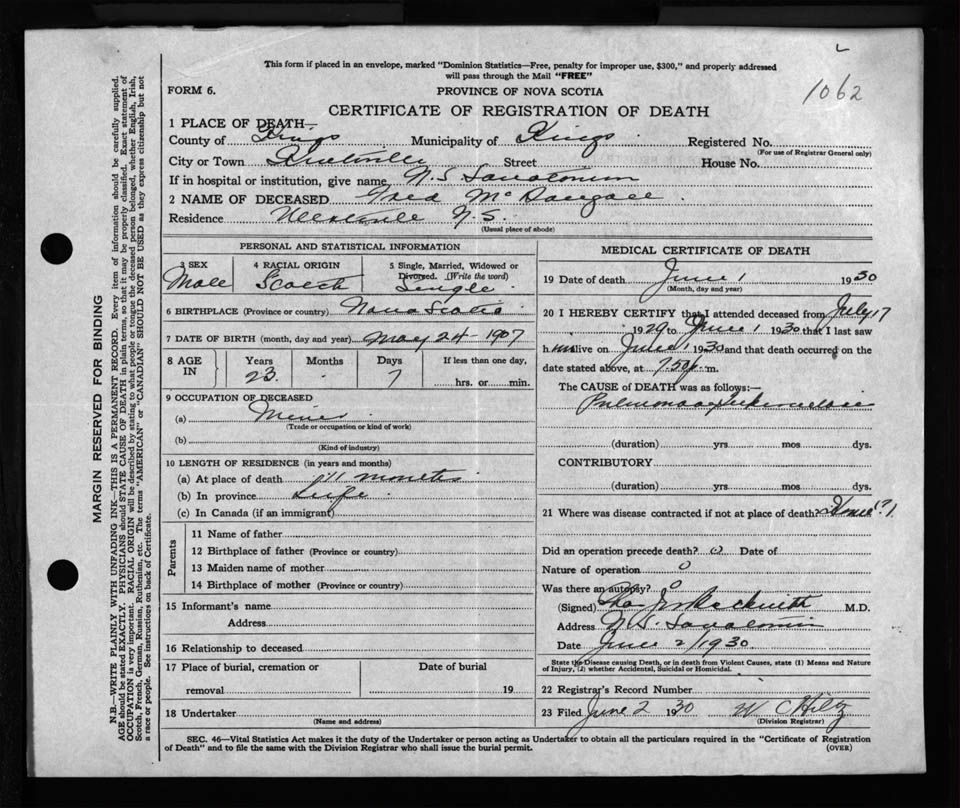 L
1062
This form if placed in an envelope, marked "Dominion Statistics—Free, penalty for improper use, $300," and properly addressed
will pass through the Mail "FREE"
FORM 6.
PROVINCE OF NOVA SCOTIA
CERTIFICATE OF REGISTRATION OF DEATH
1 PLACE OF DEATH—
County of Kings Municipality of Kings Registered No.
(For use of Registrar General only)
City or Town Kentville Street House No.
If in hospital or institution, give name N.S Sanatorium
2 NAME OF DECEASED Fred McDougall
Residence Westville N.S.
(Usual place of abode)
PERSONAL AND STATISTICAL INFORMATION
3 SEX
Male
4 RACIAL ORIGIN
Scotch
5 Single, Married, Widowed or
Divorced. (Write the word)
Single
6 BIRTHPLACE (Province or country) Nova Scotia
7 DATE OF BIRTH (month, day and year) May 24 1907
8 AGE IN
Years Months Days If less than one day,
23 - 7 hrs. or min.
9 OCCUPATION OF DECEASED
(a) Miner
(Trade or occupation or kind of work)
(b)
(Kind of industry)
10 LENGTH OF RESIDENCE (in years and months)
(a) At place of death 11 months
(b) In province Life
(c) In Canada (if an immigrant)
Parents
11 Name of father
12 Birthplace of father (Province or country)
13 Maiden name of mother
14 Birthplace of mother (Province or country)
15 Informant's name
Address
16 Relationship to deceased
17 Place of burial, cremation or Date of burial
removal 19
18 Undertaker
(Name and address)
MEDICAL CERTIFICATE OF DEATH
19 Date of death June 1 1930
(Month, day and year)
20 I HEREBY CERTIFY that I attended deceased from July 17
1929 to June 1 1930 that I last saw
him alive on June 1 1930 and that death occurred on the
date stated above, at 7.50 p. m.
The CAUSE of DEATH was as follows:—
Pulmonary Tuberculosis
(duration) yrs mos dys.
CONTRIBUTORY
(duration) yrs mos dys.
21 Where was disease contracted if not at place of death? Home (?)
Did an operation precede death? 0 Date of
Nature of operation 0
Was there an autopsy? 0
(Signed) M.D.
Address N.S. Sanatorium
Date June 2/1930.
State the Disease causing Death, or in death from Violent Causes, state (1) Means and Nature
of Injury, (2) whether Accidental, Suicidal or Homicidal.
22 Registrar's Record Number
23 Filed June 2 1930 W C Hiltz
(Division Registrar)
SEC. 46—Vital Statistics Act makes it the duty of the Undertaker or person acting as Undertaker to obtain all the particulars required in the "Certificate of Registration
of Death" and to file the same with the Division Registrar who shall issue the burial permit.
(OVER)
MARGIN RESERVED FOR BINDING
N.B.—WRITE PLAINLY WITH UNFADING INK—THIS IS A PERMANENT RECORD. Every item of information should be carefully supplied.
AGE should be stated EXACTLY. PHYSICIANS should STATE CAUSE OF DEATH in plain terms, so that it may be properly classified. Exact statement of
OCCUPATION is very important. RACIAL ORIGIN will be described by stating to what people or tongue the deceased person belonged, whether English, Irish,
Scotch, French, German, Russian, Ruthenian, etc. The terms "AMERICAN" or "CANADIAN" SHOULD NOT BE USED as they express citizenship but not
a race or people. See instructions on back of Certificate.